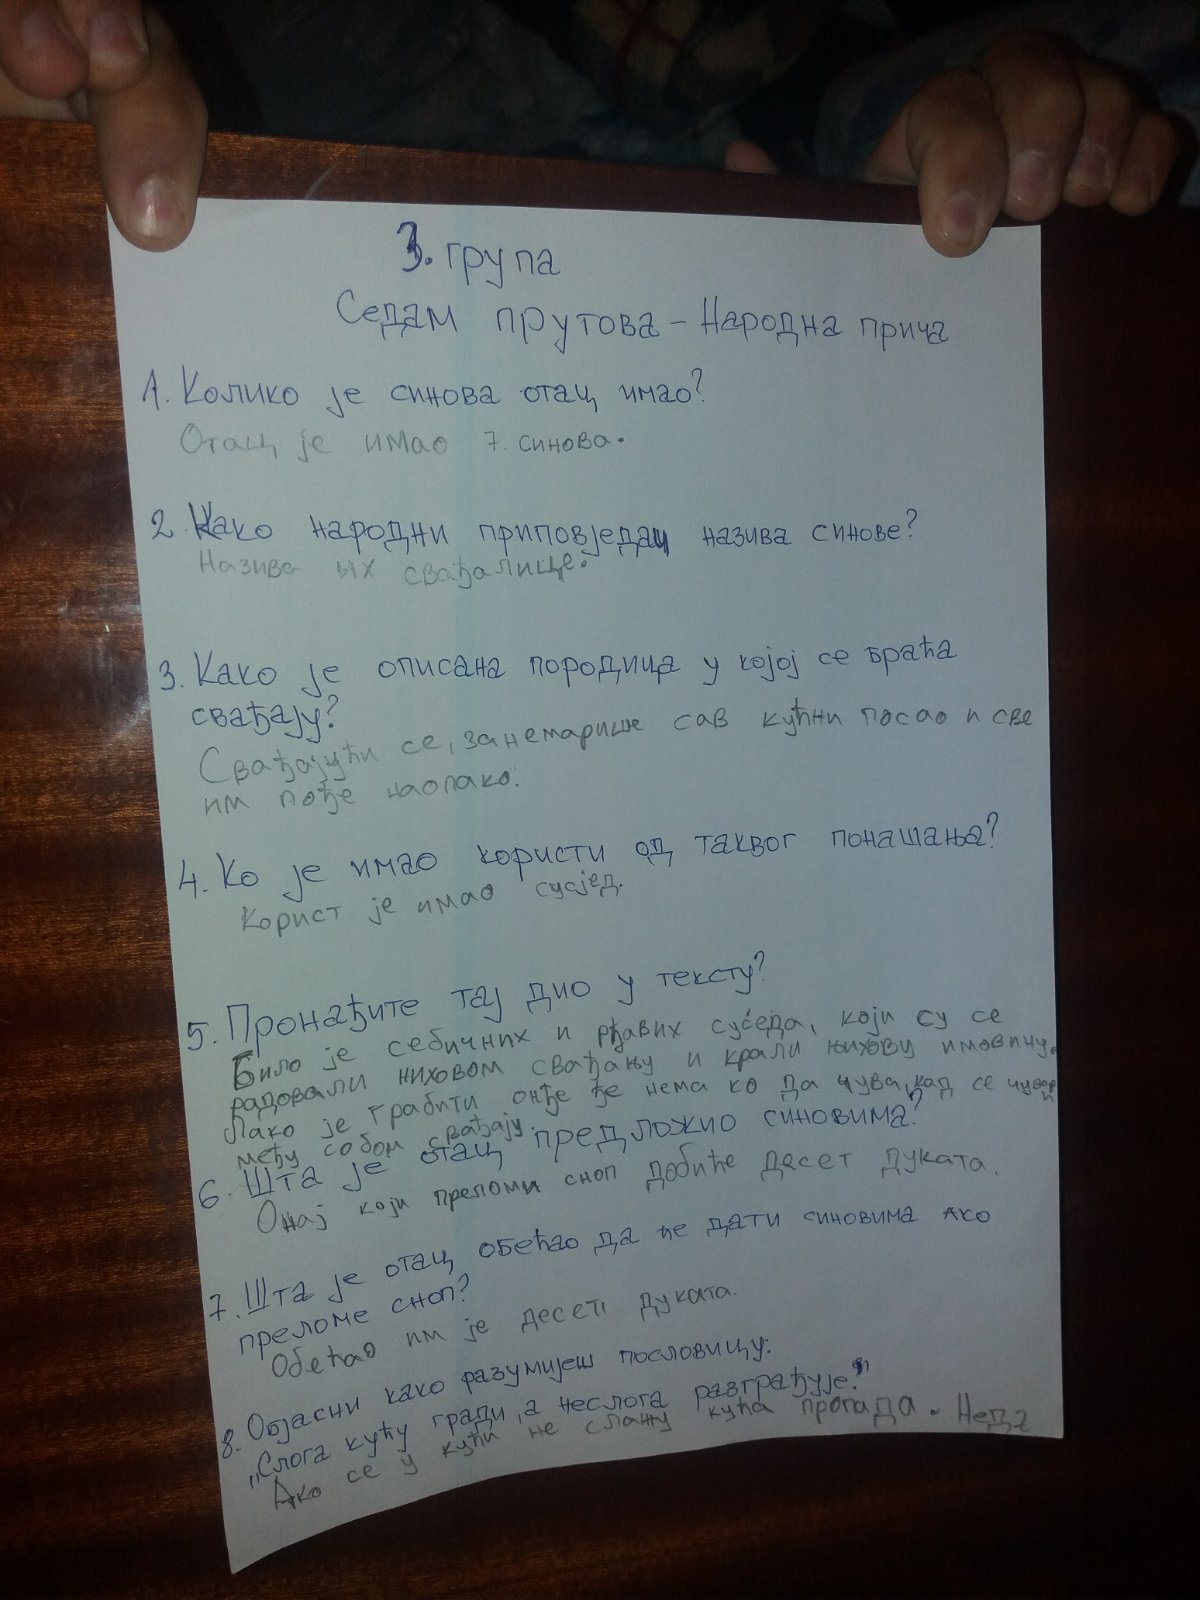 3. група
Седам прутова - Народна прича
1. Колико је синова отац имао?
Отац је имао 7. синова.
2. Како народни приповједач назива синове?
Назива их свађалице.
3. Како је описана породица у којој се браћа
свађају?
Свађајући се, занемарише сав кућни посао и све
им пође наопако.
4. Ко је имао користи од таквог понашања?
Корист је имао сусјед.
5. Пронађите тај дио у тексту?
Било је себичних и рђавих сусједа, који су се
радовали њиховом свађању и крали њихову имовину.
Лако је грабити онђе ђе нема ко да чува, кад се чувари
међу собом свађају.
6. Шта је отац предложио синовима?
Онај који преломи сноп добиће десет дуката.
7. Шта је отац обећао да ће дати синовима ако
преломе сноп?
Обећао им је десет дуката.
8. Објасни како разумијеш пословицу:
„Слога кућу гради, а неслога разграђује."
Ако се у кући не слажу кућа пропада.